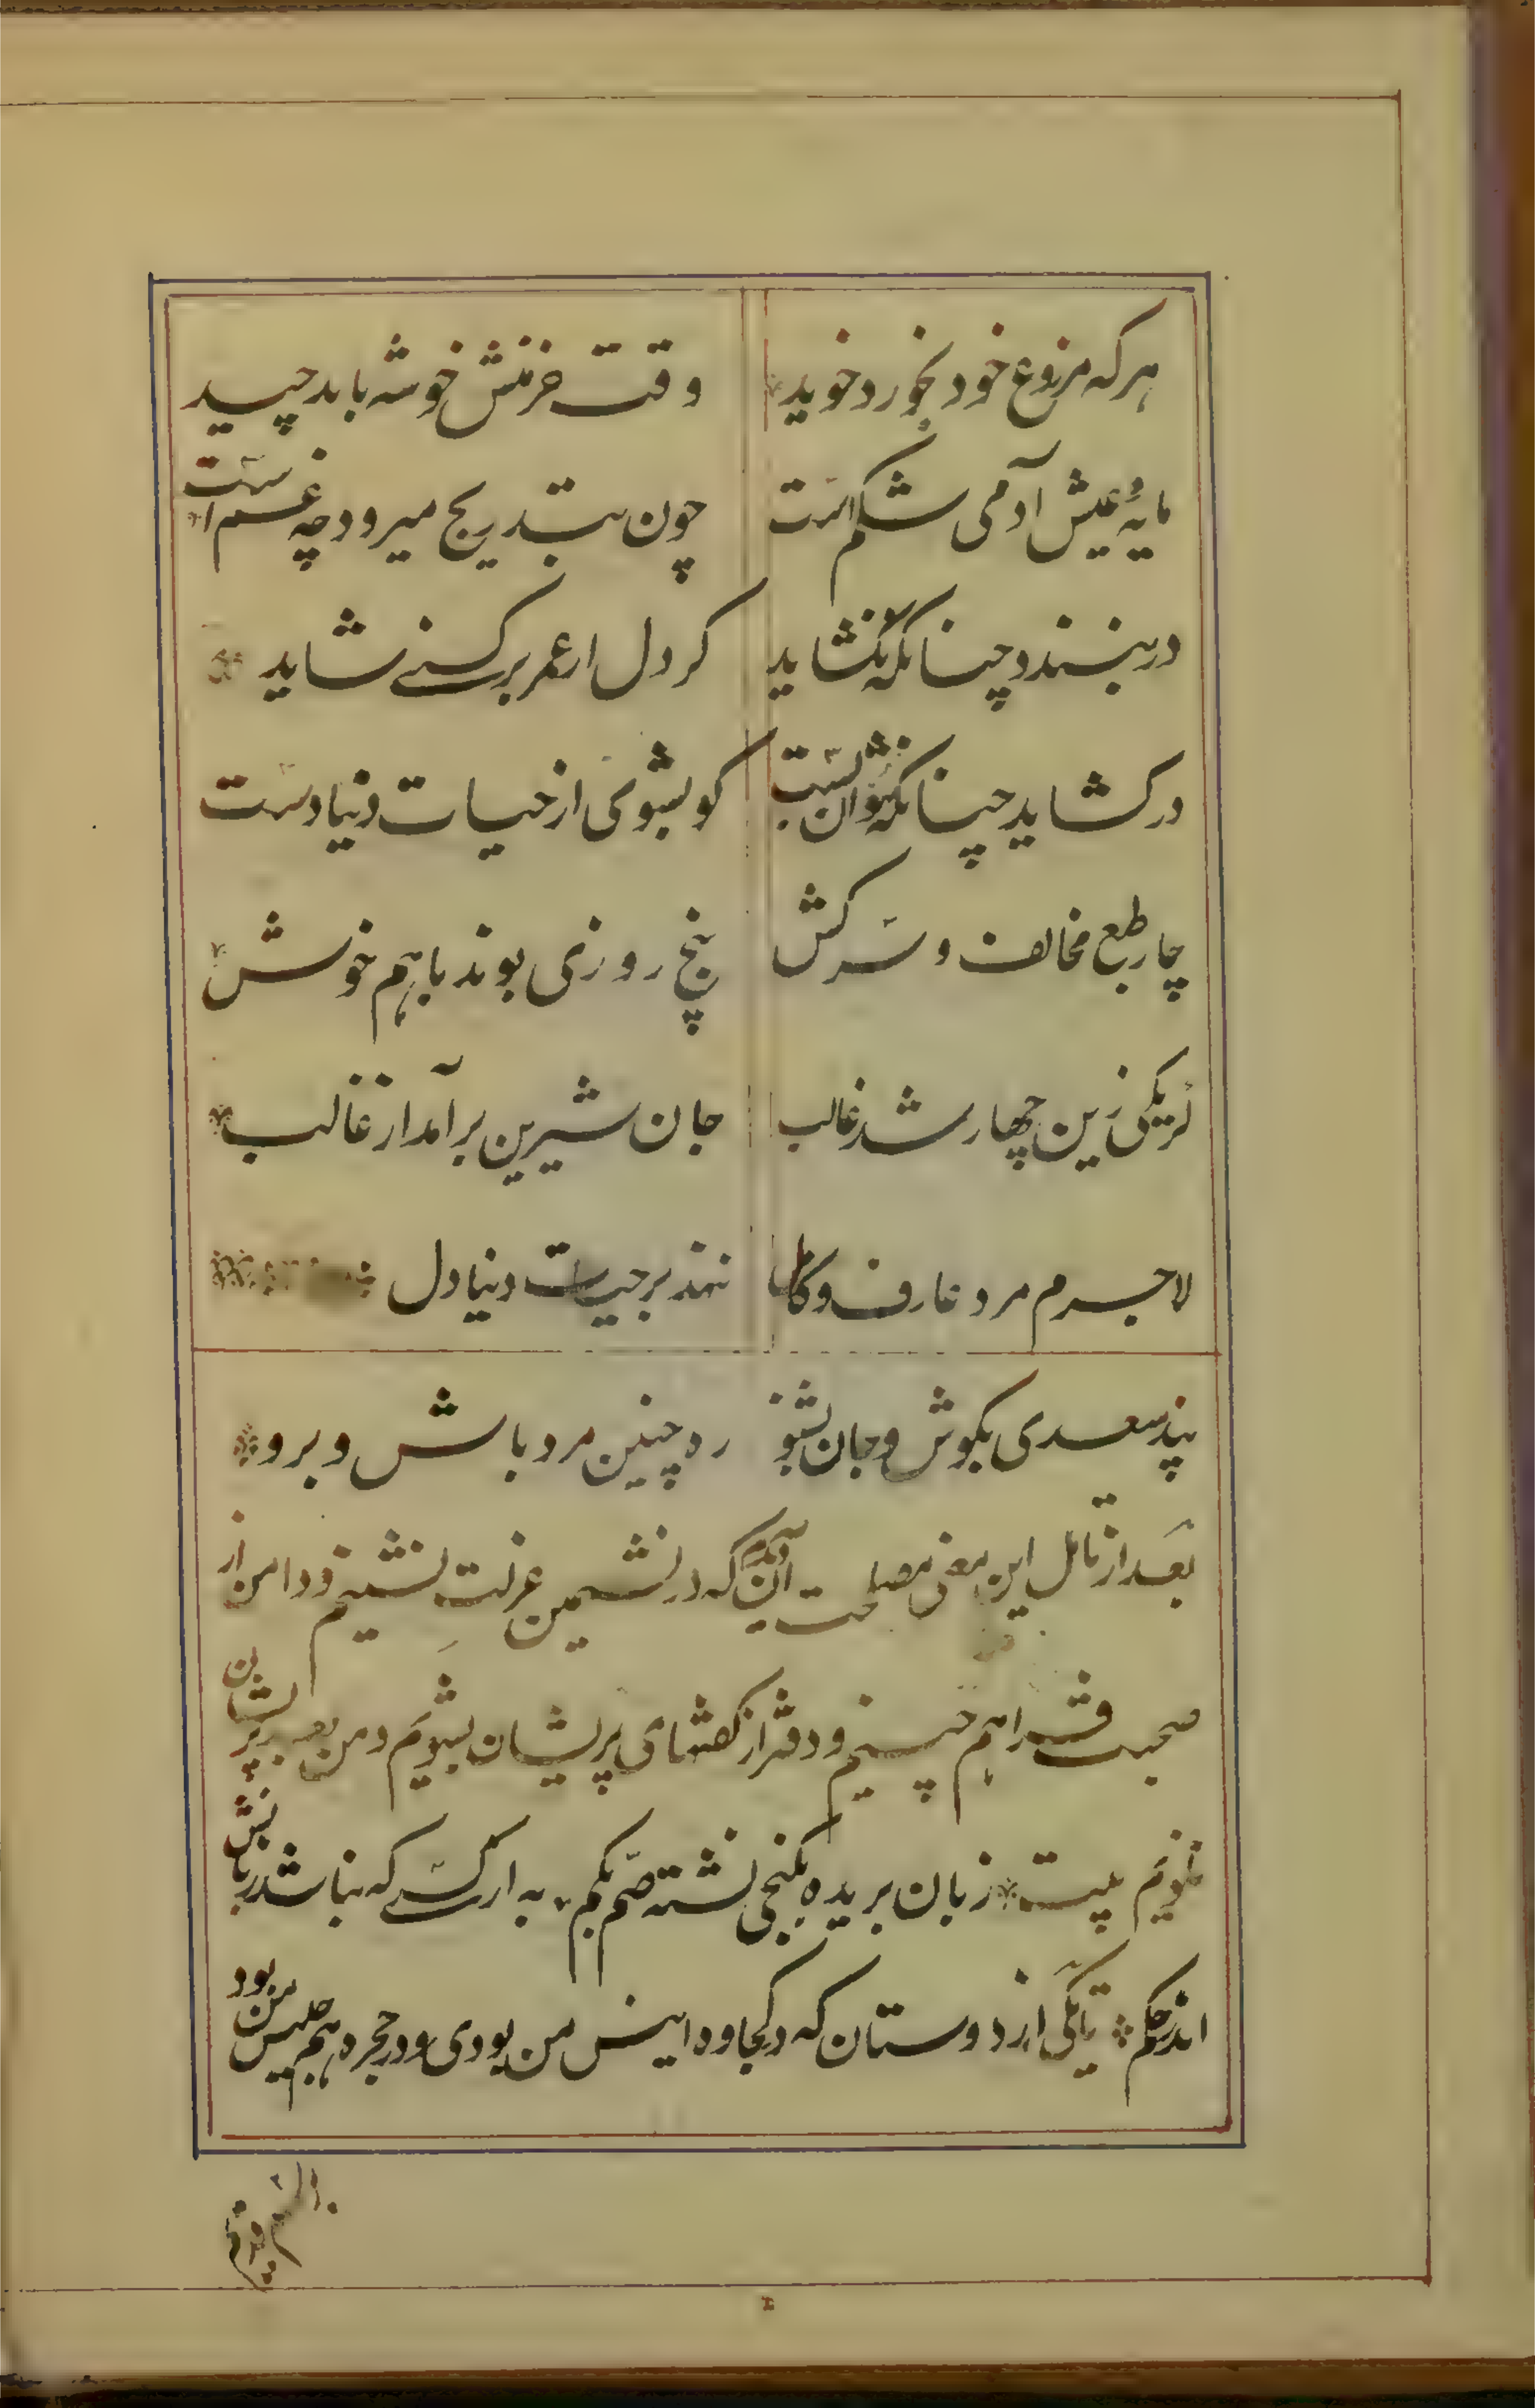 هرکه مزروع خود بخورد خوید وقت خرمنش خوشه باید چید
مایهٔ عیش آدمی شکم است چون بتدریج میرود چه غم است
در ببندد چنانکه نگشاید گر دل از عمر برکنی شاید
در گشاید چنانکه نتوان بست گو بشوی از حیات دنیا دست
چار طبع مخالف و سرکش پنج روزی بوند باهم خوش
گر یکی زین چهار شد غالب جان شیرین برآمد از غالب
لاجرم مرد عارف و کامل ننهد بر حیات دنیا دل
پند سعدی بگوش و جان بشنو ره چنین مرد باش و برو
بعد از تامل این معنی مصلحت آن دیدم که در نشیمن عزلت نشینم و دامن از
صحبت فراهم چینم و دفتر از گفتهای پریشان بشویم و من بعد پریشان
نگویم بیت زبان بریده بکنجی نشسته صم بکم به از کسی که نباشد زبانش
اندر حکم تا یکی از دوستان که در کجاوه انیس من بودی و در حجره هم جلیس من بود